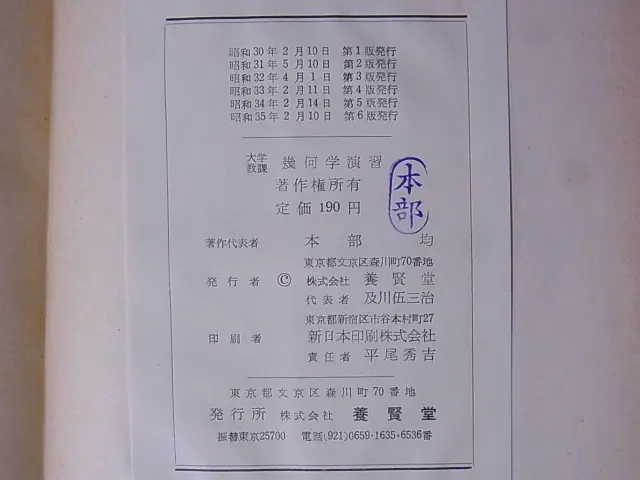 昭和30年2月10日 第1版発行
昭和31年5月10日 第2版発行
昭和32年4月1日 第3版発行
昭和33年2月11日 第4版発行
昭和34年2月14日 第5版発行
昭和35年2月10日 第6版発行
大学教課 幾何学演習
著作権所有
定価190円
本部
著作代表者 本部 均
東京都文京区森川町70番地
発行者 © 株式会社 養賢堂
代表者 及川伍三治
東京都新宿区市谷本村町27
印刷者 新日本印刷株式会社
責任者 平尾秀吉
東京都文京区森川町70番地
発行所 株式会社 養賢堂
振替東京25700 電話(921)0659・1635・6536番